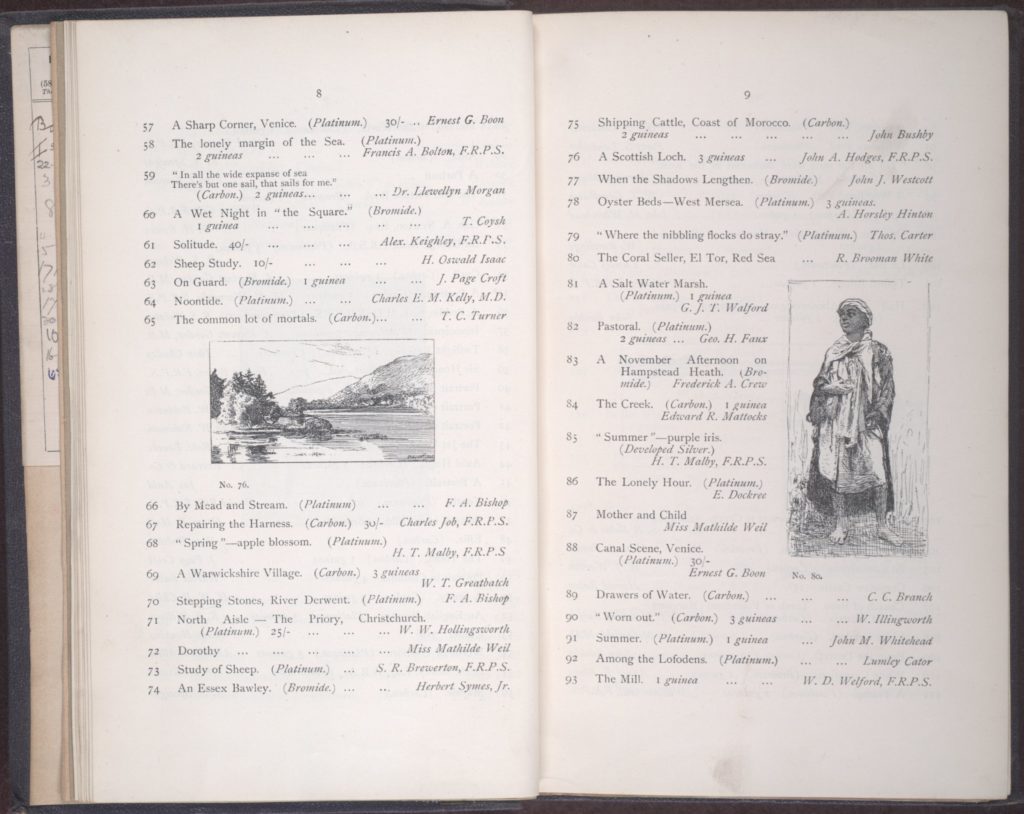 8
57 A Sharp Corner, Venice. (Platinum.) 30/- .. Ernest G. Boon
58 The lonely margin of the Sea. (Platinum.)
2 guineas ... ... ... Francis A. Bolton, F.R.P.S.
59 "In all the wide expanse of sea
There's but one sail, that sails for me."
(Carbon.) 2 guineas... ... ... Dr. Llewellyn Morgan
60 A Wet Night in "the Square." (Bromide.)
1 guinea ... ... ... .. ... T. Coysh
61 Solitude. 40/- ... ... ... Alex. Keighley, F.R.P.S.
62 Sheep Study. 10/- ... ... ... H. Oswald Isaac
63 On Guard. (Bromide.) 1 guinea ... ... J. Page Croft
64 Noontide. (Platinum.) ... ... Charles E. M. Kelly, M.D.
65 The common lot of mortals. (Carbon.)... ... T. C. Turner
No. 76.
66 By Mead and Stream. (Platinum) ... ... F. A. Bishop
67 Repairing the Harness. (Carbon.) 30/- Charles Job, F.R.P.S.
68 "Spring"—apple blossom. (Platinum.)
H. T. Malby, F.R.P.S
69 A Warwickshire Village. (Carbon.) 3 guineas
W. T. Greatbatch
70 Stepping Stones, River Derwent. (Platinum.) F. A. Bishop
71 North Aisle — The Priory, Christchurch.
(Platinum.) 25/- ... ... ... W. W. Hollingsworth
72 Dorothy ... ... ... ... ... Miss Mathilde Weil
73 Study of Sheep. (Platinum.) ... S. R. Brewerton, F.R.P.S.
74 An Essex Bawley. (Bromide.) ... .. Herbert Symes, Jr.
9
75 Shipping Cattle, Coast of Morocco. (Carbon.)
2 guineas ... ... ... ... ... John Bushby
76 A Scottish Loch. 3 guineas ... John A. Hodges, F.R.P.S.
77 When the Shadows Lengthen. (Bromide.) John J. Westcott
78 Oyster Beds—West Mersea. (Platinum.) 3 guineas.
A. Horsley Hinton
79 "Where the nibbling flocks do stray." (Platinum.) Thos. Carter
80 The Coral Seller, El Tor, Red Sea ... R. Brooman White
81 A Salt Water Marsh.
(Platinum.) 1 guinea
G. J. T. Walford
82 Pastoral. (Platinum.)
2 guineas ... Geo. H. Faux
83 A November Afternoon on
Hampstead Heath. (Bro-
mide.) Frederick A. Crew
84 The Creek. (Carbon.) 1 guinea
Edward R. Mattocks
85 "Summer"—purple iris.
(Developed Silver.)
H. T. Malby, F.R.P.S.
86 The Lonely Hour. (Platinum.)
E. Dockree
87 Mother and Child
Miss Mathilde Weil
88 Canal Scene, Venice.
(Platinum.) 30/-
Ernest G. Boon
No. 80.
89 Drawers of Water. (Carbon.) ... ... ... C. C. Branch
90 "Worn out." (Carbon.) 3 guineas ... ... W. Illingworth
91 Summer. (Platinum.) 1 guinea ... John M. Whitehead
92 Among the Lofodens. (Platinum.) ... ... Lumley Cator
93 The Mill. 1 guinea ... ... W. D. Welford, F.R.P.S.